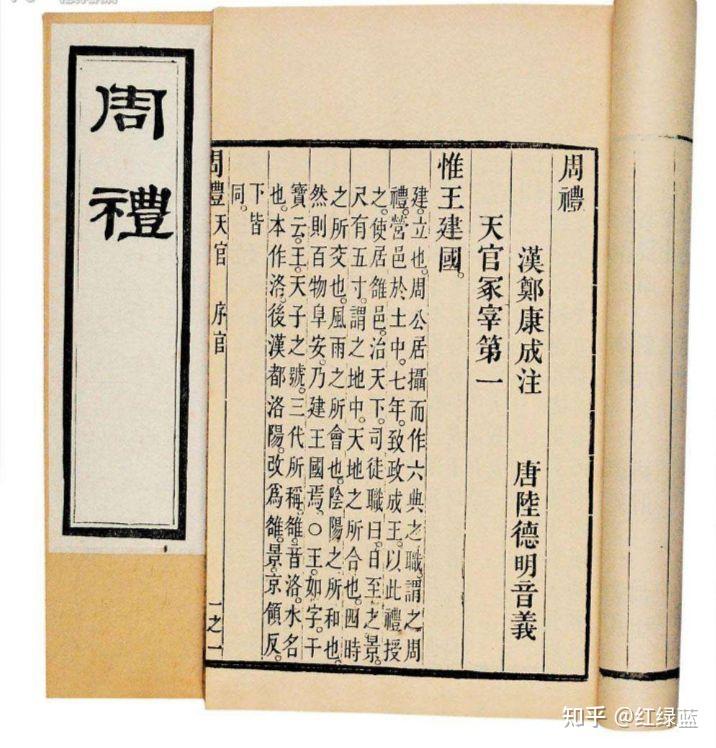 周禮
周禮
漢鄭康成注　唐陸德明音義
天官冢宰第一
惟王建國。
建。立也。周公居攝而作六典之職。謂之周
禮。營邑於土中。七年。致政成王。以此禮授
之。使居雒邑。治天下。司徒職曰。日至之景。
尺有五寸。謂之地中。天地之所合也。四時
之所交也。風雨之所會也。陰陽之所和也。
然則百物阜安。乃建王國焉。○王。如字。干
寶云。王。天子之號。三代所稱。雒音洛。水名
也。本作洛。後漢都洛陽。改爲雒。景。京領反。
下皆
同。
周禮　天官　序官　一之一
知乎 @红绿蓝